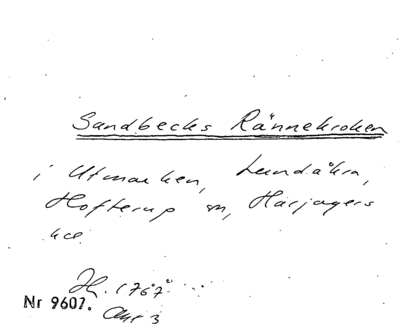 Sandbecks Rännekroken
i Utmarken, Lundåkra,
Hofterup sn, Harjagers
hd.
H. 1767
Nr 9607. Akt 3